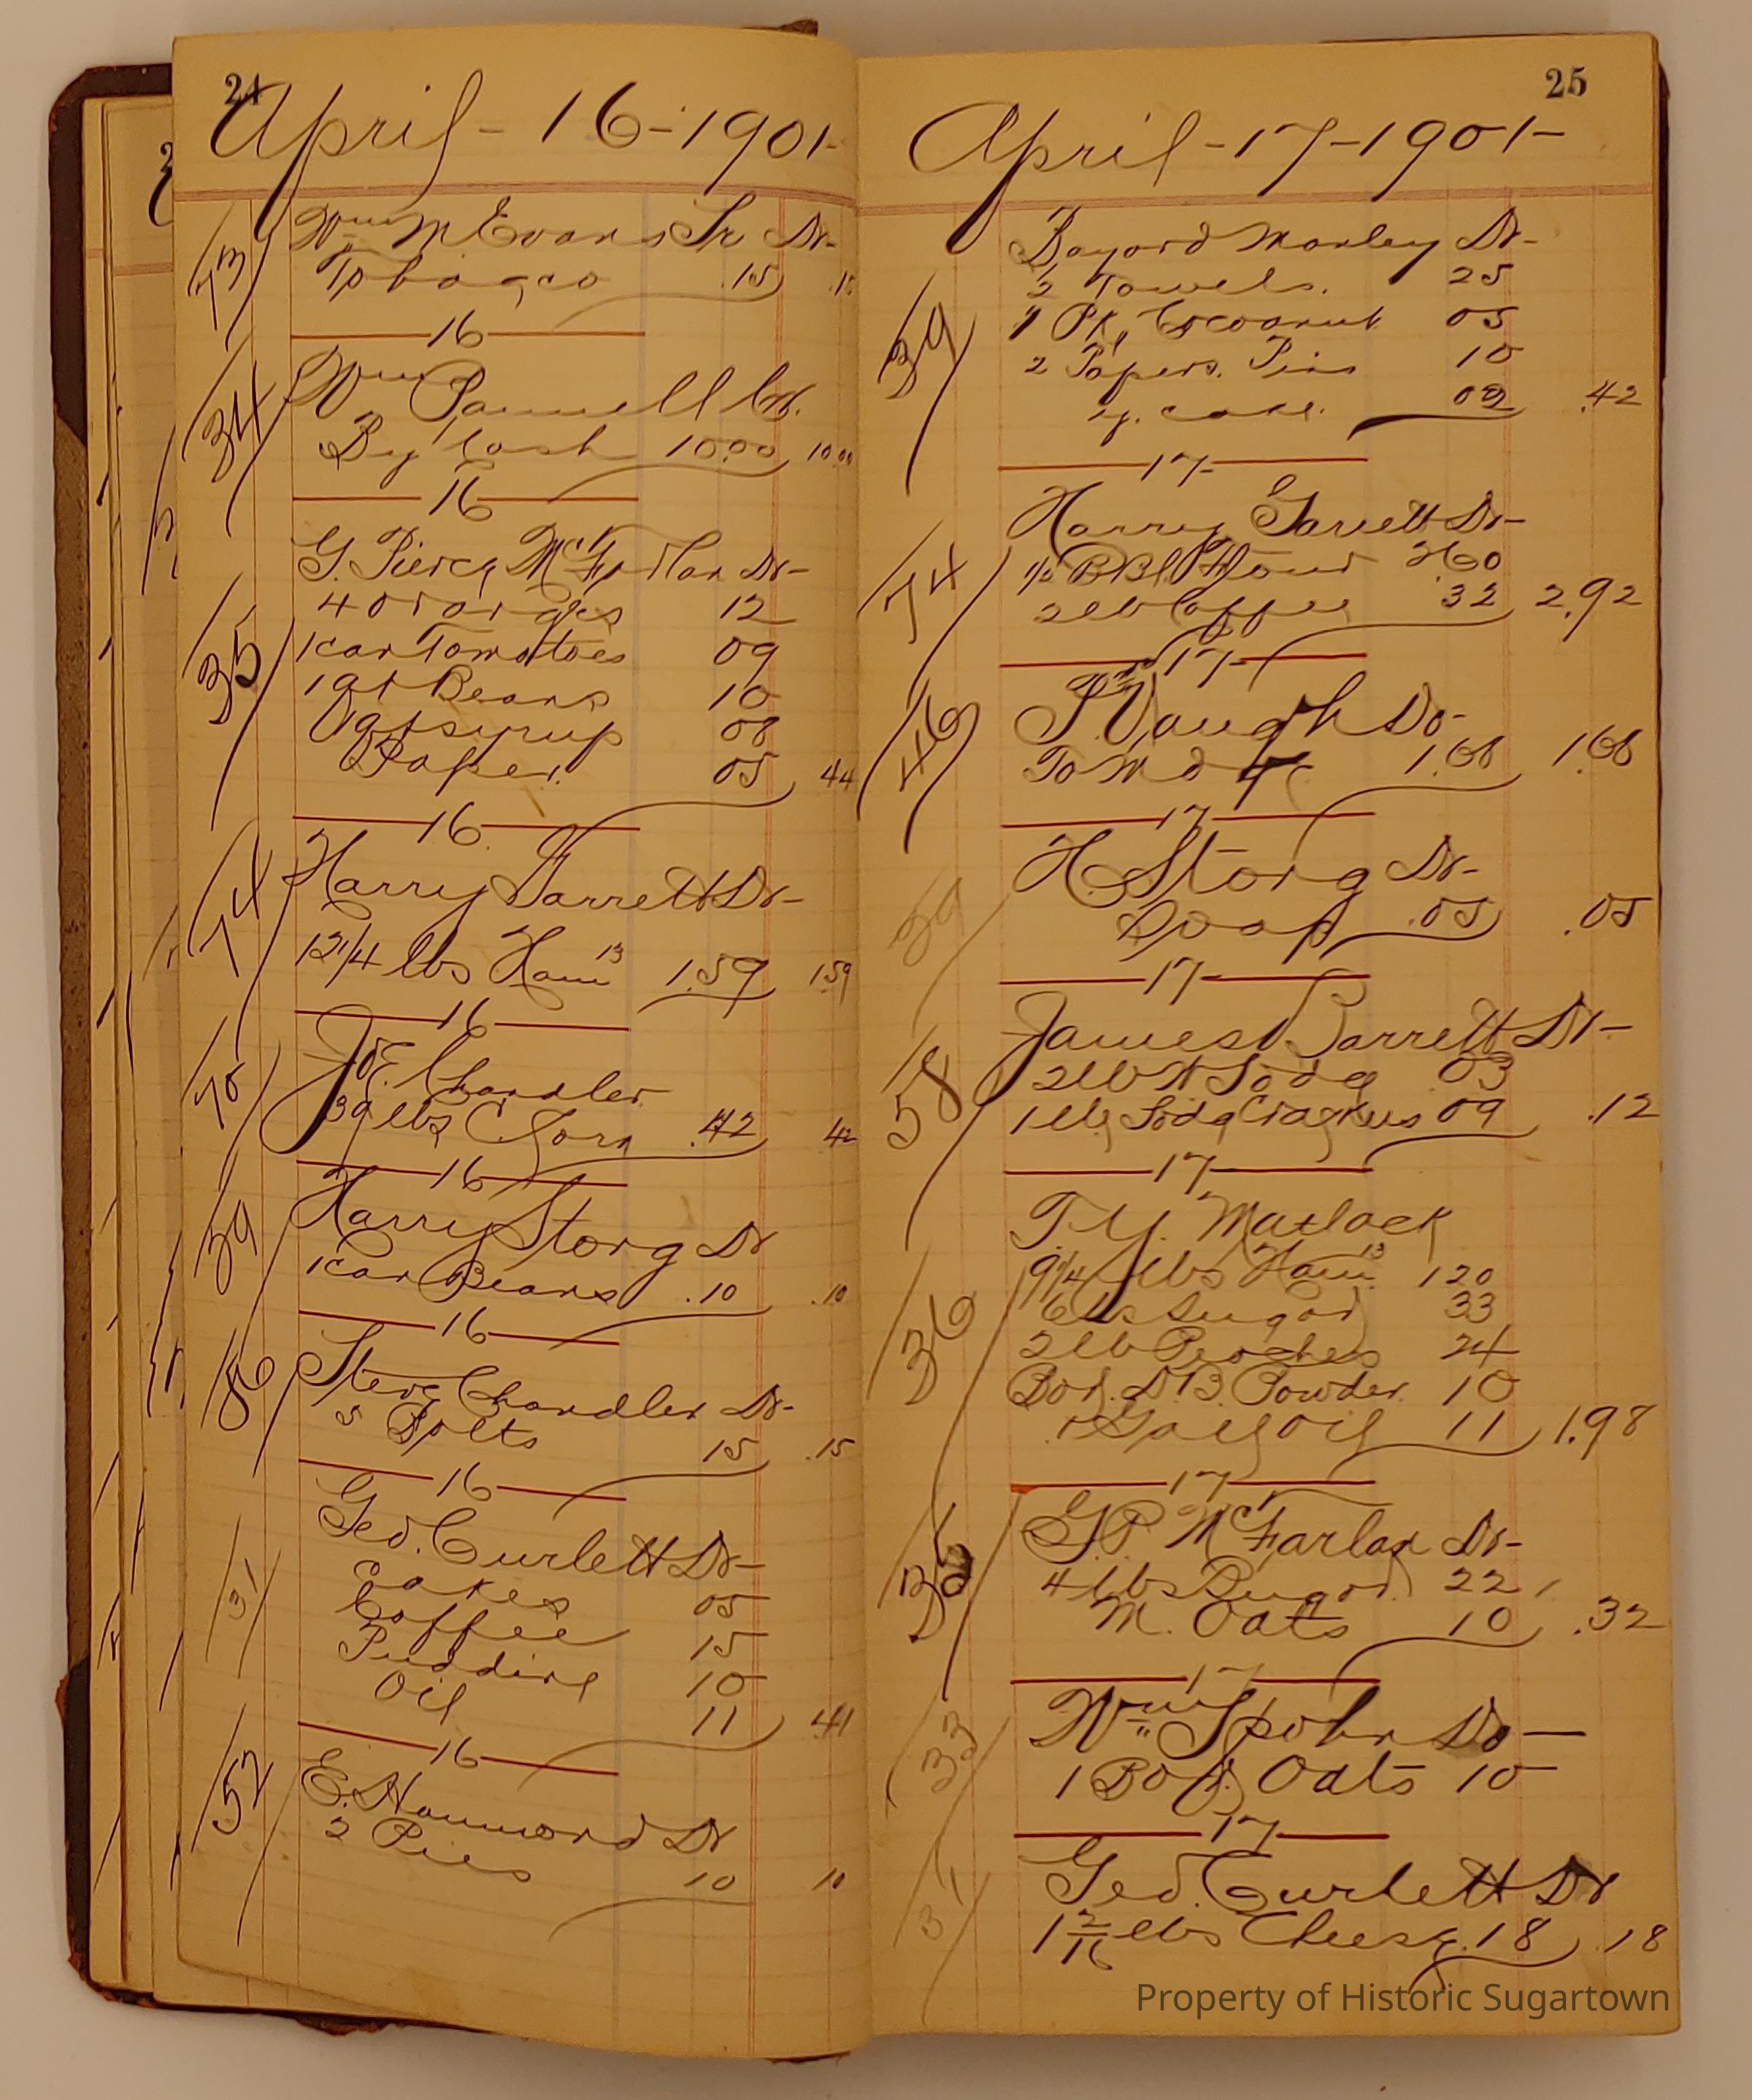 24
April - 16 - 1901-
73
Wm M Evans Sr Dr-
Tobacco .15 .15
16
34
Wm Pannell Cr.
By Cash 10.00 10.00
16
35
G. Pierce McFarlan Dr-
4 oranges 12
1 can Tomatoes 09
1 qt Beans 10
qt syrup 08
Paper. 05 44
16
74
Harry Garrett Dr-
12 1/4 lbs Ham 13 1.59 1.59
16
70
Jos E. Chandler
39 lbs C. Corn .42 42
16
39
Harry Storg Dr
1 can Beans .10 .10
16
86
Chandler Dr-
5 Bolts 15 .15
16
31
Geo. Curlett Dr-
Cakes 05
Coffee 15
Pudding 10
Oil 11 41
16
52
E. Hammond Dr
2 Pies 10 10
25
April - 17 - 1901-
39
Bayard Manley Dr-
2 Towels. 25
1 Pk, Cocoanut 05
2 Papers. Pins 10
y. cake. 02 .42
17-
74
Harry Garrett Dr-
1/2 BBl Flour 260
2 lb Coffee 32 2.92
17-
46
Vaugh Dr-
To Md 1.68 1.68
17
39
H. Storg Dr-
Soap .05 .05
17-
58
James Barrett Dr-
2 lb W Soda 03
1 lb Soda Crackers 09 .12
17-
36
T. Y. Matlack
9 1/4 lbs Ham 13 120
6 lbs Sugar 33
2 lb Peaches 24
Box. B. Powder. 10
1 Gal Oil 11 1.98
17
35
G. P. McFarlan Dr-
4 lbs Sugar. 22
M. Oats 10 .32
17
33
Wm Spohn Dr-
1 Box. Oats 10
17
31
Geo. Curlett Dr
1 2/16 lbs Cheese .18 .18
Property of Historic Sugartown